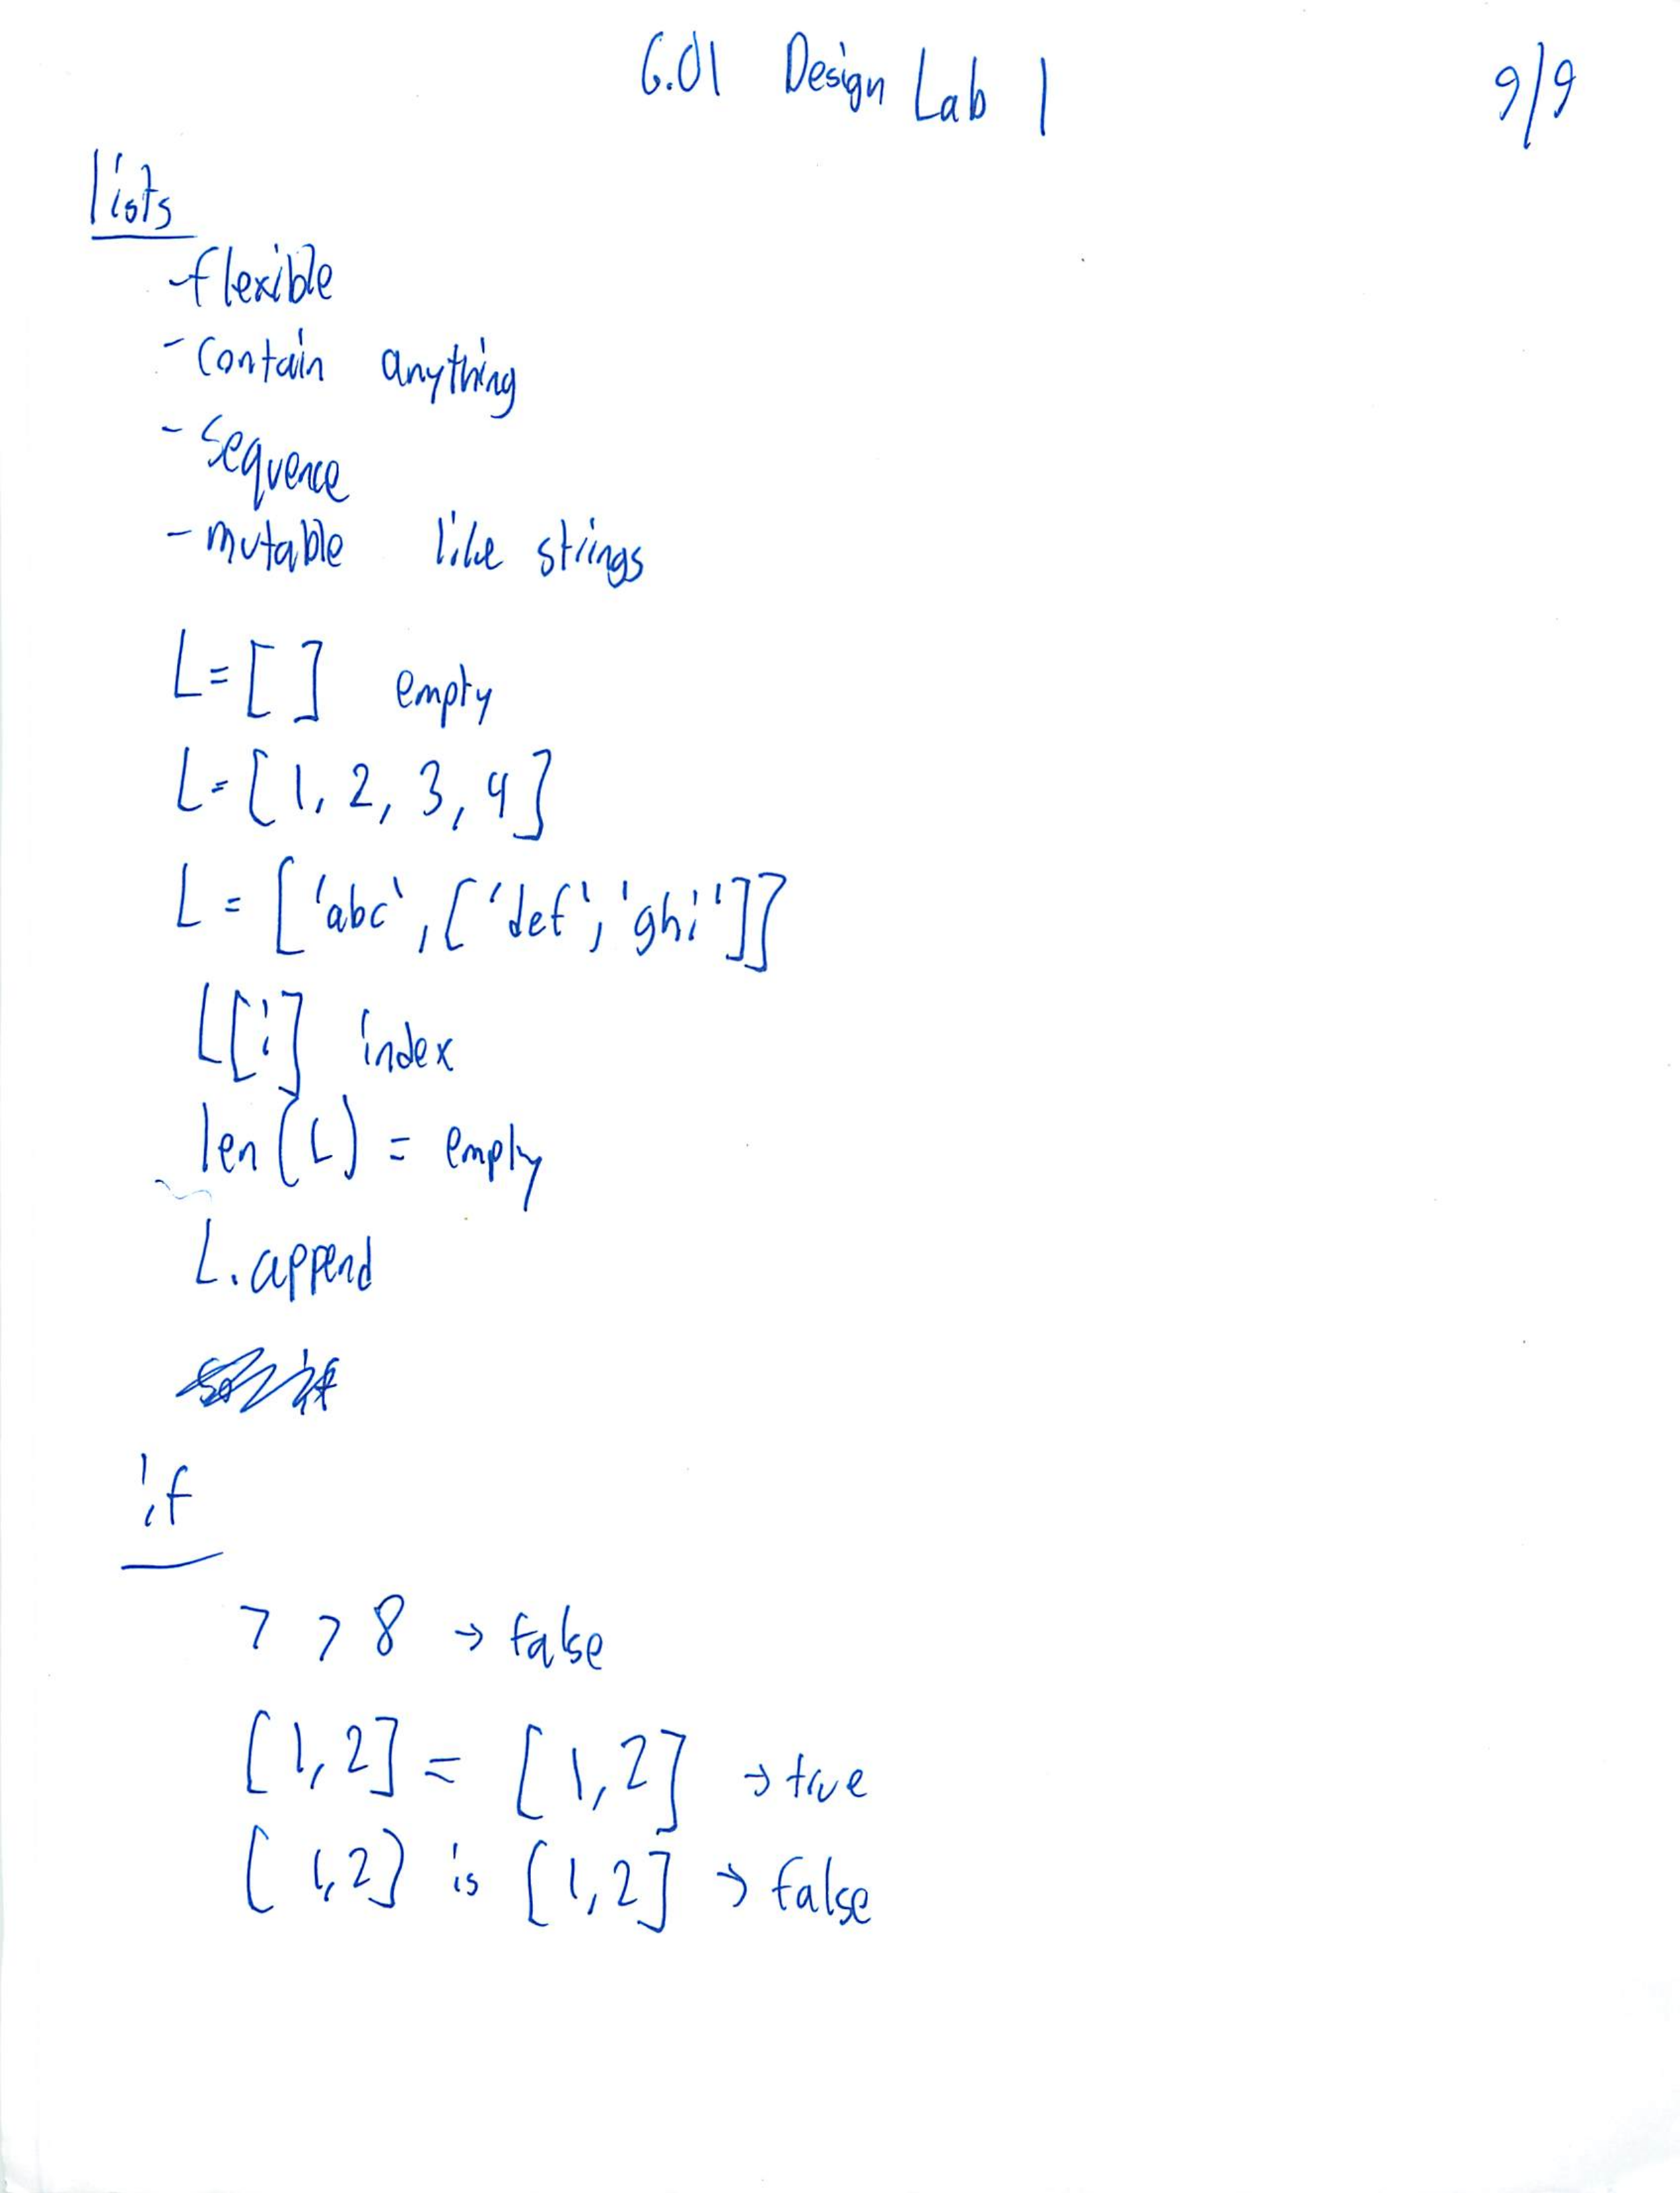 6.01 Design Lab 1 9/9
lists
- flexible
- contain anything
- sequence
- mutable like strings
L=[] empty
L=[1, 2, 3, 4]
L = ['abc', ['def', 'ghi']]
L[i] index
len(L) = empty
L. append
if
7 > 8 → false
[1,2] = [1,2] → true
[1,2] is [1,2] → false